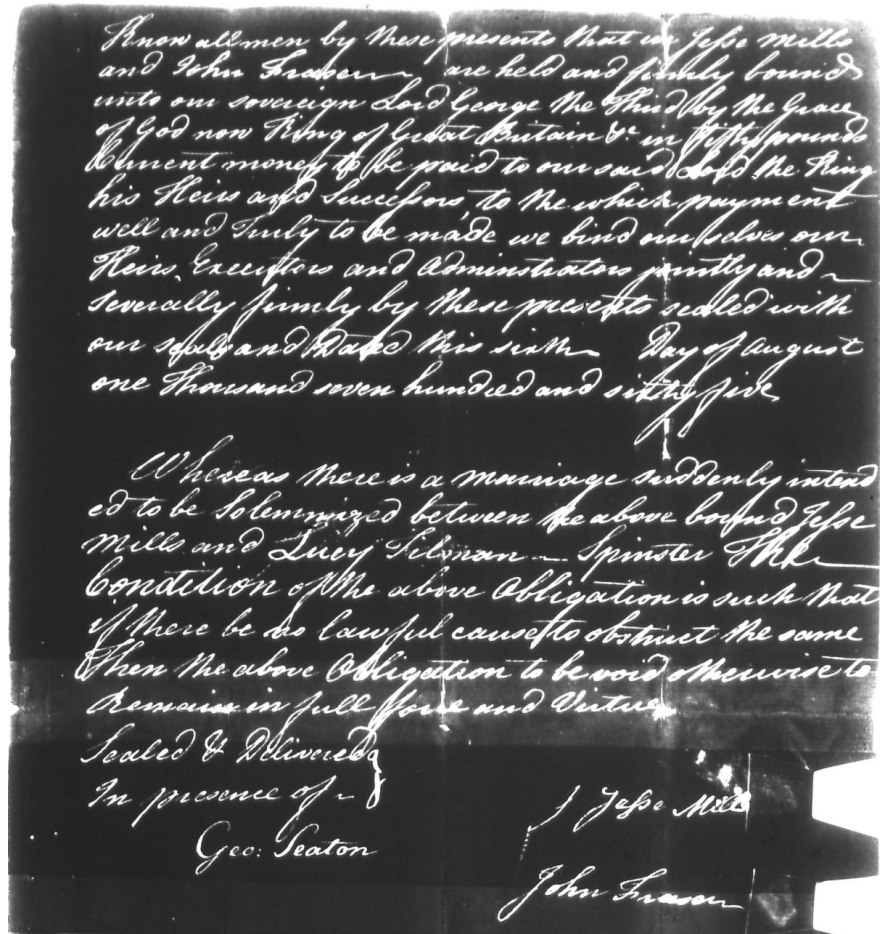 Know all men by these presents that we Jesse Mills
and John Fraser are held and firmly bound
unto our sovereign Lord George the Third by the Grace
of God now King of Great Britain &c in fifty pounds
Current money to be paid to our said Lord the King
his Heirs and Successors to the which payment
well and Truly to be made we bind ourselves our
Heirs Executors and Adminstrators jointly and
severally firmly by these presents sealed with
our seals and Dated this sixth Day of August
one Thousand seven hundred and sixty five
Whereas there is a Marriage suddenly intend
ed to be Solemnized between the above bound Jesse
Mills and Lucy Tilman Spinster The
Condition of the above Obligation is such that
if there be no lawful cause to obstruct the same
Then the above Obligation to be void otherwise to
Remain in full force and Virtue
Sealed & Delivered
In presence of
Jesse Mills
Geo: Seaton
John Fraser